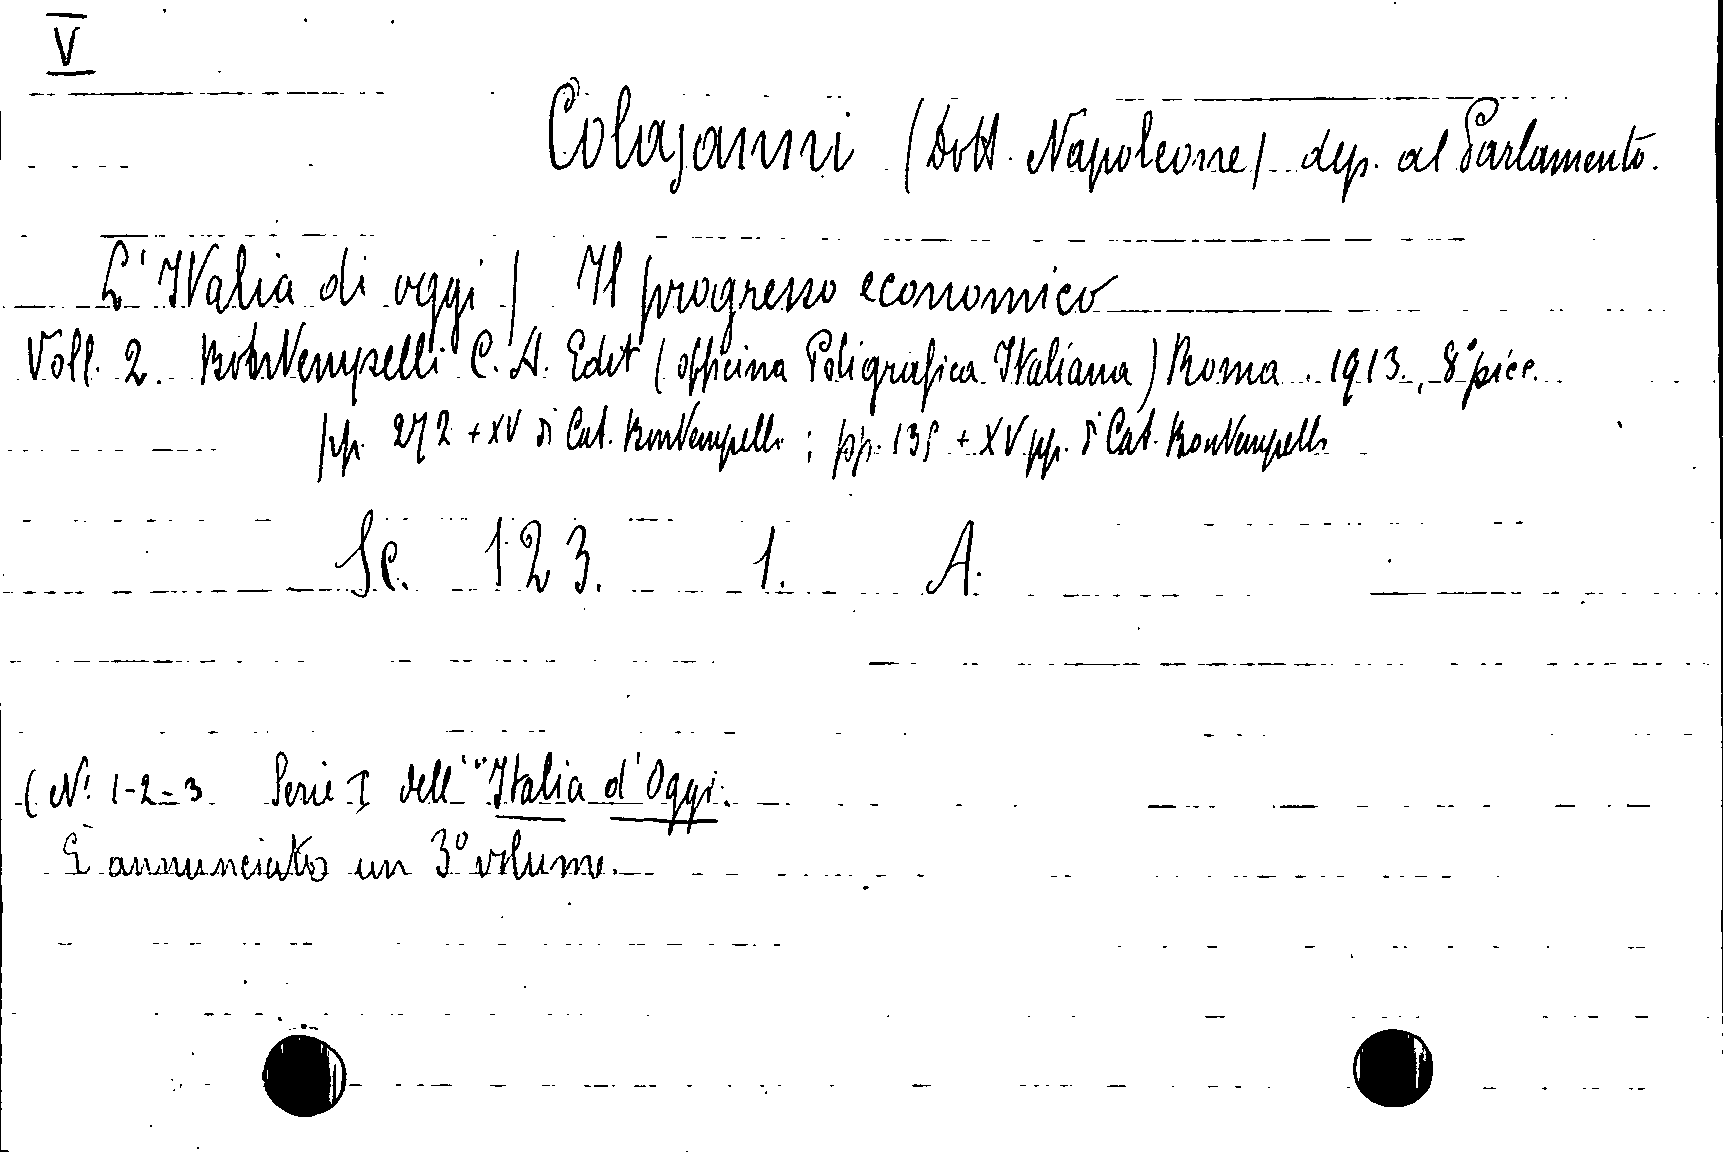 V
Colajanni (Dott. Napoleone) dep. al Parlamento.
L'Italia di oggi / Il progresso economico
Voll. 2. Bontempelli C. A. Edit (officina Poligrafica Italiana) Roma. 1913., 8° picc.
pp. 272 + XV di Cat. Bontempelli ; pp. 135 + XV pp. di Cat. Bontempelli
Sc. 123. 1. A.
(N.i 1-2-3 Serie I dell' "Italia d'Oggi.
È annunciato un 3° volume.